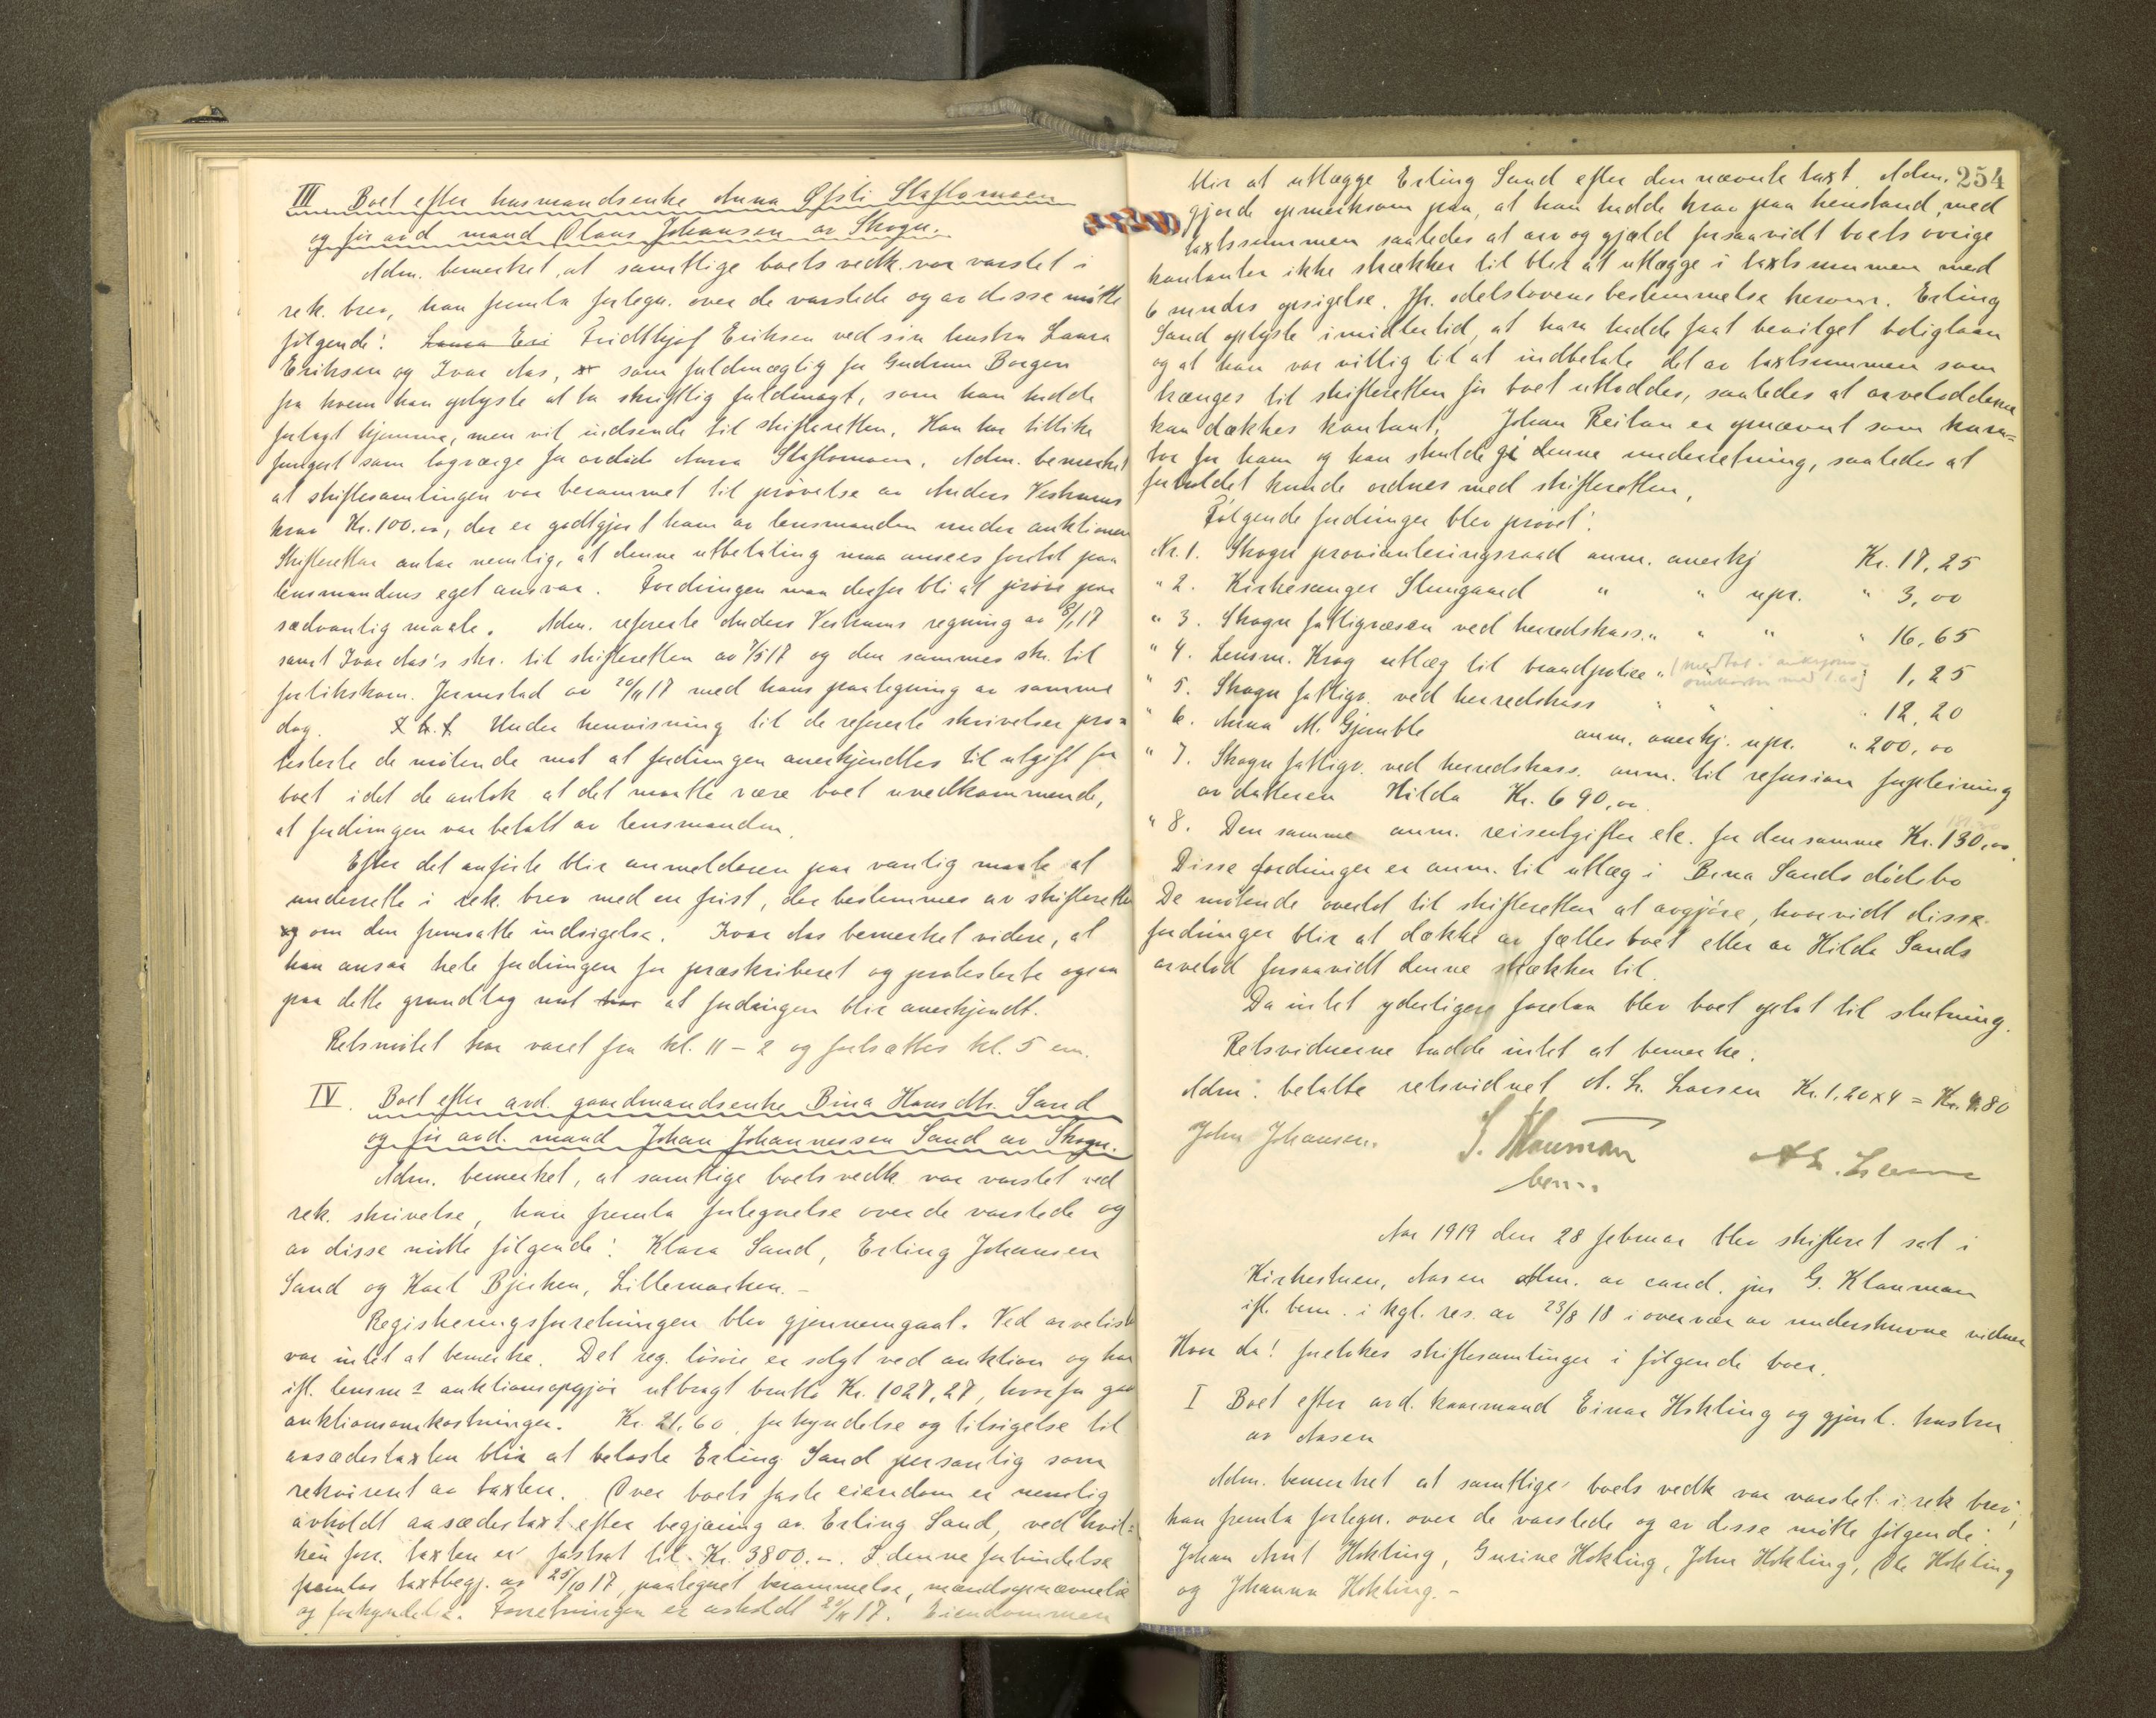 III Boet efter husmandsenke Anna Øfsti Staflomoen
og før avd mand Olaus Johansen av Skogn.
Adm. bemerket, at samtlige boets vedk. var varslet i
rek. brev, han fremla forlegn. over de varslede og av disse møtte
følgende: Laura Eri Fridthjof Eriksen ved sin hustru Laura
Eriksen og Ivar Aas, som fuldmægtig for Gudrun Borgen
fra hvem han oplyste at ha skriftlig fuldmagt, som han hadde
forlagt hjemme, men vil indsende til skifteretten. Han har tillike
fungert som lagværge for avdøde Anna Staflomoen. Adm. bemerket
at skiftesamlingen var berammet til prøvelse av Anders Veskums
krav Kr. 100.00, der er godtgjort ham av lensmanden under auktionen
Skifteretten antar nemlig, at denne utbetaling maa ansees foretat paa
lensmandens eget ansvar. Fordringen maa derfor bli at prøve paa
sædvanlig maate. Adm. refererte Anders Veskums regning av 8/1 17
samt Ivar Aas's skr. til skifteretten av 7/5 17 og den sammes skr. til
forlikskom. Jermstad av 20/11 17 med hans paategning av samme
dag. Under henvisning til de refererte skrivelser pro=
testerte de møtende mot at fordringen anerkjendtes til utgift for
boet idet de antok at det maatte være boet uvedkommende,
at fordringen var betalt av lensmanden.
Efter det anførte blir anmelderen paa vanlig maate at
underrette i rek. brev med en frist, der bestemmes av skifteretten
om den fremsatte indsigelse. Ivar Aas bemerket videre, at
han ansaa hele fordringen for præskriberet og protesterte ogsaa
paa dette grundlag mot at fordringen blir anerkjendt.
Retsmøtet har varet fra kl. 11 - 2 og fortsættes kl. 5 em.
IV. Boet efter avd. gaardmandsenke Bina Hansdtr. Sand
og før avd. mand Johan Johannessen Sand av Skogn.
Adm. bemerket, at samtlige boets vedk. var varslet ved
rek. skrivelse, han fremla fortegnelse over de varslede og
av disse møtte følgende: Klara Sand, Erling Johansen
Sand og Karl Bjerken, Lillemarken. -
Registreringsforretningen blev gjennemgaat. Ved arveliste
var intet at bemerke. Det reg. løsøre er solgt ved auktion og har
ifl. lensm s auktionsopgjør utbragt brutto Kr. 1027,27, hvorfra gaar
auktionsomkostninger. Kr. 21,60, forkyndelse og tilsigelse til
aasædestaxten blir at belaste Erling Sand personlig som
rekvirent av taxten. Over boets faste eiendom er nemlig
avholdt aasædestaxt efter begjæring av Erling Sand, ved hvil=
ken forr. taxten er fastsat til Kr. 3800.-. I denne forbindelse
fremlas taxtbegj. av 25/10 17, paategnet berammelse, mandsopnævnelse
og forkyndelse. Forretningen er avholdt 20/11 17. Eiendommen
254
blir at utlægge Erling Sand efter den nævnte taxt. Adm.
gjorde opmerksom paa, at han hadde krav paa henstand med
taxtsummen saaledes at arv og gjæld forsaavidt boets øvrige
kontanter ikke strækker til blir at utlægge i taxtsummen med
6 mndrs opsigelse. Jfr. odelslovens bestemmelse herom. Erling
Sand oplyste imidlertid, at han hadde faat bevilget boliglaan
og at han var villig til at indbetale det av taxtsummen som
trænges til skifteretten før boet utloddes, saaledes at arvelodderne
kan dækkes kontant. Johan Reitan er opnævnt som kura=
tor for ham og han skulde gi denne underretning, saaledes at
forholdet kunde ordnes med skifteretten.
Følgende fordringer blev prøvet:
Nr. 1. Skogn provianteringsraad anm. anerkj Kr. 17,25
" 2. Kirkesanger Stengaard " " upr. " 3,00
" 3. Skogn fattigvæsen ved herredskass. " " " " 16,65
" 4. Lensm. Krog utlæg til brandpolice " 1,25
" 5. Skogn fattigv. ved herredskass " " " 12,20
" 6. Anna M. Gjemble anm. anerkj. upr. " 200,00
" 7. Skogn fattigv. ved herredskass. anm. til refusion forpleining
av datteren Hilda Kr. 690,00.
" 8. Den samme anm. reiseutgifter etc. for densamme Kr. 130,00.
Disse fordringer er anm. til utlæg i Bina Sands dødsbo
De møtende overlot til skifteretten at avgjøre, hvorvidt disse
fordringer blir at dække av fælles boet eller av Hilda Sands
arvelod forsaavidt denne strækker til.
Da intet yderligere forelaa blev boet optat til slutning.
Retsvidnerne hadde intet at bemerke.
Adm. betalte retsvidnet A. L. Larsen Kr. 1.20 x 4 = Kr. 4.80
John Johansen. G. Klouman A L. Larsen
bem.
Aar 1919 den 28 februar blev skifteret sat i
Kirkestuen, Aasen Adm. av cand. jur G. Klouman
ifl. bem. i kgl. res. av 23/8 18 i overvær av underskrevne vidner
Hvor da! foretokes skiftesamlinger i følgende boer.
I Boet efter avd. kaarmand Einar Hokling og gjenl. hustru
av Aasen
Adm. bemerket at samtlige boets vedk var varslet i rek brev,
han fremla forlegn. over de varslede og av disse møtte følgende:
Johan Arnt Hokling, Gurine Hokling, John Hokling, Ole Hokling
og Johanna Hokling. -